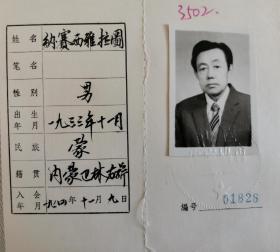 3502.
姓名 納赛西雅拉圖
笔名
性别 男
出生年月 一九三三年十一月
民族 蒙
籍贯 内蒙巴林右旗
入会年月 一九八四年十一月九日
编号 01828